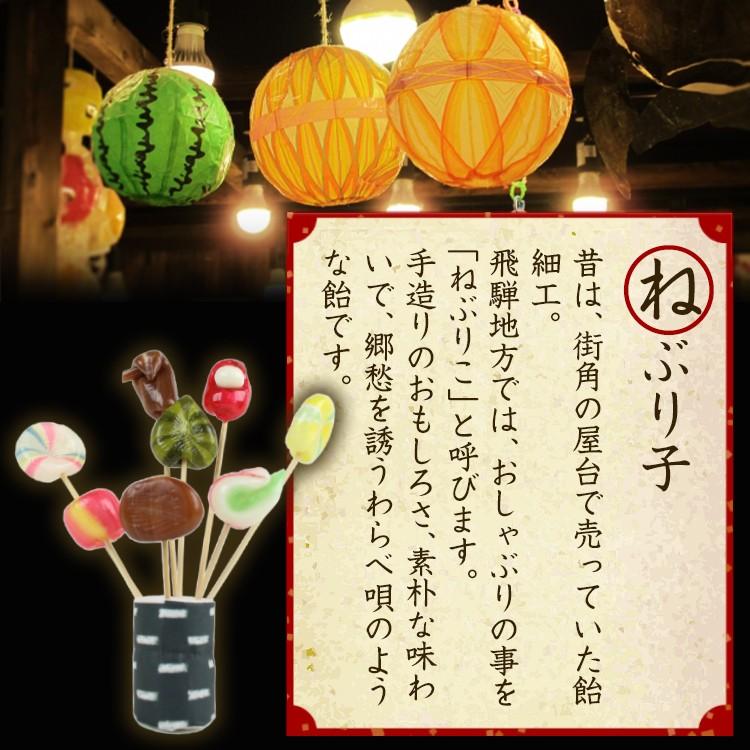 ねぶり子
昔は、街角の屋台で売っていた飴
細工。
飛騨地方では、おしゃぶりの事を
「ねぶりこ」と呼びます。
手造りのおもしろさ、素朴な味わ
いで、郷愁を誘うわらべ唄のよう
な飴です。